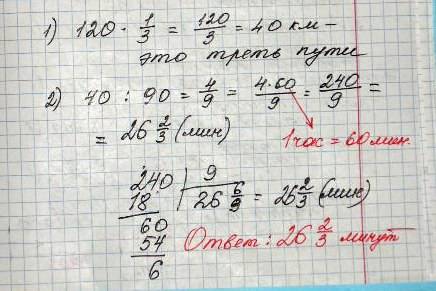 1) 120 · 1/3 = 120/3 = 40 км –
это треть пути
2) 40 : 90 = 4/9 = 4·60/9 = 240/9 =
= 26 2/3 (мин)
1 час = 60 мин.
240 | 9
18 | 26 6/9 = 26 2/3 (мин)
60
54
6
Ответ: 26 2/3 минут